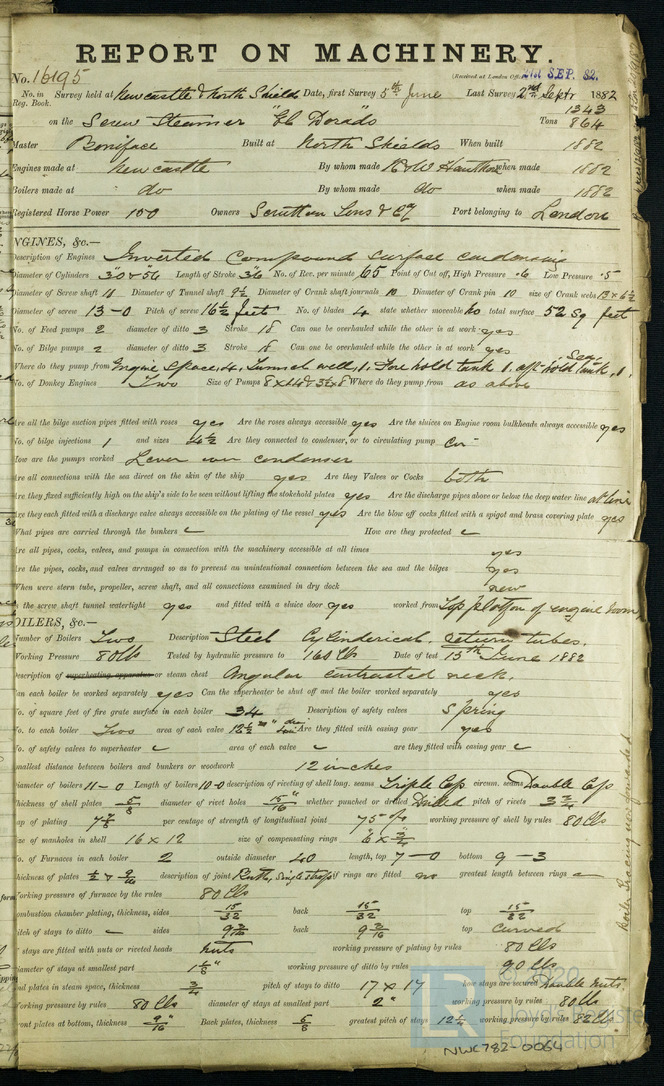 REPORT ON MACHINERY.
No. 16195 (Received at London Off. 21st SEP. 82.
No. in Survey held at Newcastle & North Shields Date, first Survey 5th June Last Survey 2nd Septr 1882
Reg. Book. 1343
on the Screw Steamer "El Dorado" Tons 864
Master Boniface Built at North Shields When built 1882
Engines made at Newcastle By whom made R & W Hawthorn when made 1882
Boilers made at do By whom made do when made 1882
Registered Horse Power 150 Owners Scrutton Sons & Co Port belonging to London
NGINES, &c.—
Description of Engines Inverted Compound surface condensing
Diameter of Cylinders 30 & 56 Length of Stroke 36 No. of Rev. per minute 65 Point of Cut off, High Pressure .6 Low Pressure .5
Diameter of Screw shaft Diameter of Tunnel shaft 9½ Diameter of Crank shaft journals 10 Diameter of Crank pin 10 size of Crank webs 13 x 6½
Diameter of screw 13-0 Pitch of screw 16½ feet No. of blades 4 state whether moveable no total surface 52 sq feet
No. of Feed pumps 2 diameter of ditto 3 Stroke 18 Can one be overhauled while the other is at work yes
No. of Bilge pumps 2 diameter of ditto 3 Stroke 18 Can one be overhauled while the other is at work yes
Where do they pump from Engine Space, 4, Tunnel well, 1. Fore hold tank 1. aft hold tank, 1. Sea
No. of Donkey Engines Two Size of Pumps Where do they pump from as above
Are all the bilge suction pipes fitted with roses yes Are the roses always accessible yes Are the sluices on Engine room bulkheads always accessible yes
No. of bilge injections 1 and sizes 4½ Are they connected to condenser, or to circulating pump Cir
How are the pumps worked Lever over condenser
Are all connections with the sea direct on the skin of the ship yes Are they Valves or Cocks both
Are they fixed sufficiently high on the ship's side to be seen without lifting the stokehold plates yes Are the discharge pipes above or below the deep water line at line
Are they each fitted with a discharge valve always accessible on the plating of the vessel yes Are the blow off cocks fitted with a spigot and brass covering plate yes
What pipes are carried through the bunkers How are they protected
Are all pipes, cocks, valves, and pumps in connection with the machinery accessible at all times yes
Are the pipes, cocks, and valves arranged so as to prevent an unintentional connection between the sea and the bilges yes
When were stern tube, propeller, screw shaft, and all connections examined in dry dock new
Is the screw shaft tunnel watertight yes and fitted with a sluice door yes worked from Top platform of engine room
OILERS, &c.—
Number of Boilers Two Description Steel Cylinderical. return tubes.
Working Pressure 80 lbs Tested by hydraulic pressure to 160 lbs Date of test 15th June 1882
Description of superheating apparatus or steam chest Angular contracted neck.
Can each boiler be worked separately yes Can the superheater be shut off and the boiler worked separately yes
No. of square feet of fire grate surface in each boiler 34 Description of safety valves Spring
No. to each boiler Two area of each valve Are they fitted with easing gear yes
No. of safety valves to superheater area of each valve are they fitted with easing gear
Smallest distance between boilers and bunkers or woodwork 12 inches
Diameter of boilers 11-0 Length of boilers 10-0 description of riveting of shell long. seams Triple Lap circum. seams Double Lap
Thickness of shell plates 5/8 diameter of rivet holes 15/16" whether punched or drilled Drilled pitch of rivets 3¾
Lap of plating 7⅞ per centage of strength of longitudinal joint 75 o/o working pressure of shell by rules 80 lbs
Size of manholes in shell 16 x 12 size of compensating rings 6" x ¾
No. of Furnaces in each boiler 2 outside diameter 40 length, top 7-0 bottom 9-3
Thickness of plates ½ & 9/16 description of joint Butt, Single strap if rings are fitted no greatest length between rings
Working pressure of furnace by the rules 80 lbs
Combustion chamber plating, thickness, sides 15/32 back 15/32 top 15/32
Pitch of stays to ditto sides 9 3/16 back 9 3/16 top Curved
If stays are fitted with nuts or riveted heads nuts working pressure of plating by rules 80 lbs
Diameter of stays at smallest part 1⅛" working pressure of ditto by rules 90 lbs
End plates in steam space, thickness ¾ pitch of stays to ditto 17 x 17 how stays are secured Double nuts.
Working pressure by rules 80 lbs diameter of stays at smallest part 2" working pressure by rules 80 lbs
Front plates at bottom, thickness 9/16" Back plates, thickness 5/8 greatest pitch of stays 12¼ working pressure by rules 82 lbs
© 2020
Lloyd's Register
Foundation
NWC782-0064